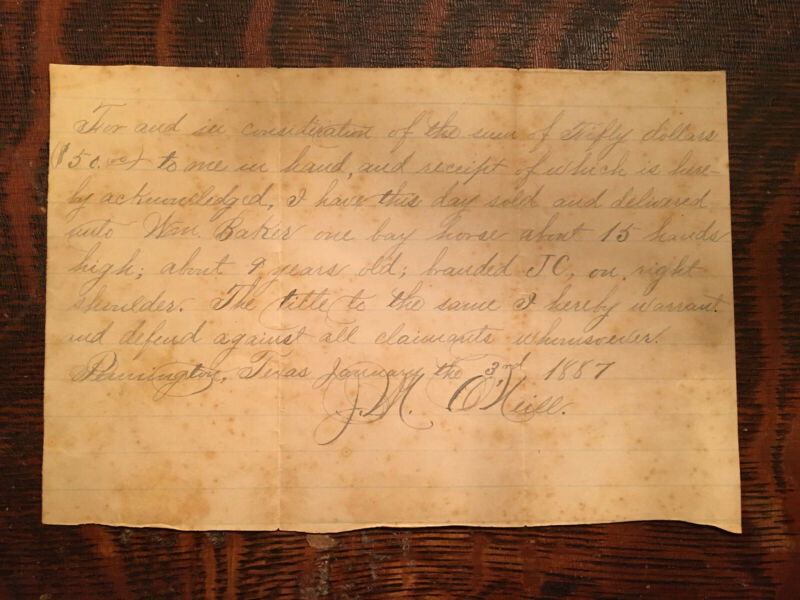 For and in consideration of the sum of Fifty dollars
($50.00) to me in hand, and receipt of which is here-
by acknowledged, I have this day sold and delivered
unto Wm. Baker one bay horse about 15 hands
high; about 9 years old; branded JC, on right
shoulder. The title to the same I hereby warrant
and defend against all claimants whomsoever.
Pennington, Texas January the 3rd 1887
J. M. O'Neill.